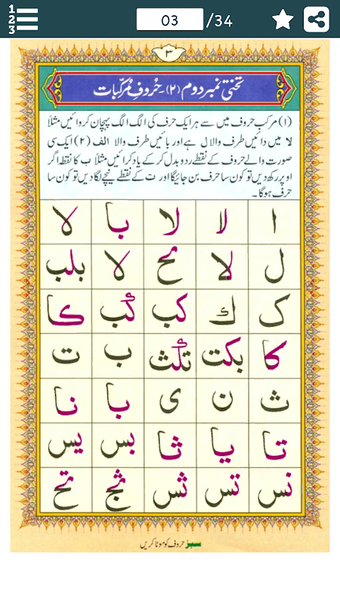 03 /34
۳
تختی نمبر دوم (۲)۔ حُروفِ مُرکّبات
(۱) مرکب حروف میں سے ہر ایک حرف کی الگ الگ پہچان کروائیں مثلاً
لا میں دائیں طرف والا ل ہے اور بائیں طرف والا الف (۲) ایک سی
صورت والے حروف کے نقطے ردو بدل کر کے یاد کرائیں مثلاً ب کا نقطہ اگر
اوپر رکھ دیں تو کون سا حرف بن جائیگا اور ت کے نقطے نیچے لگا دیں تو کون سا
حرف ہوگا۔
ا لا لا با لا
ل لا لا بلب
ک ك کب کا
کا بکت ب ت
ث ن ی با نا
تا یا ثا بس یس
نس تس ثس
سبز حروف کو موٹا کریں